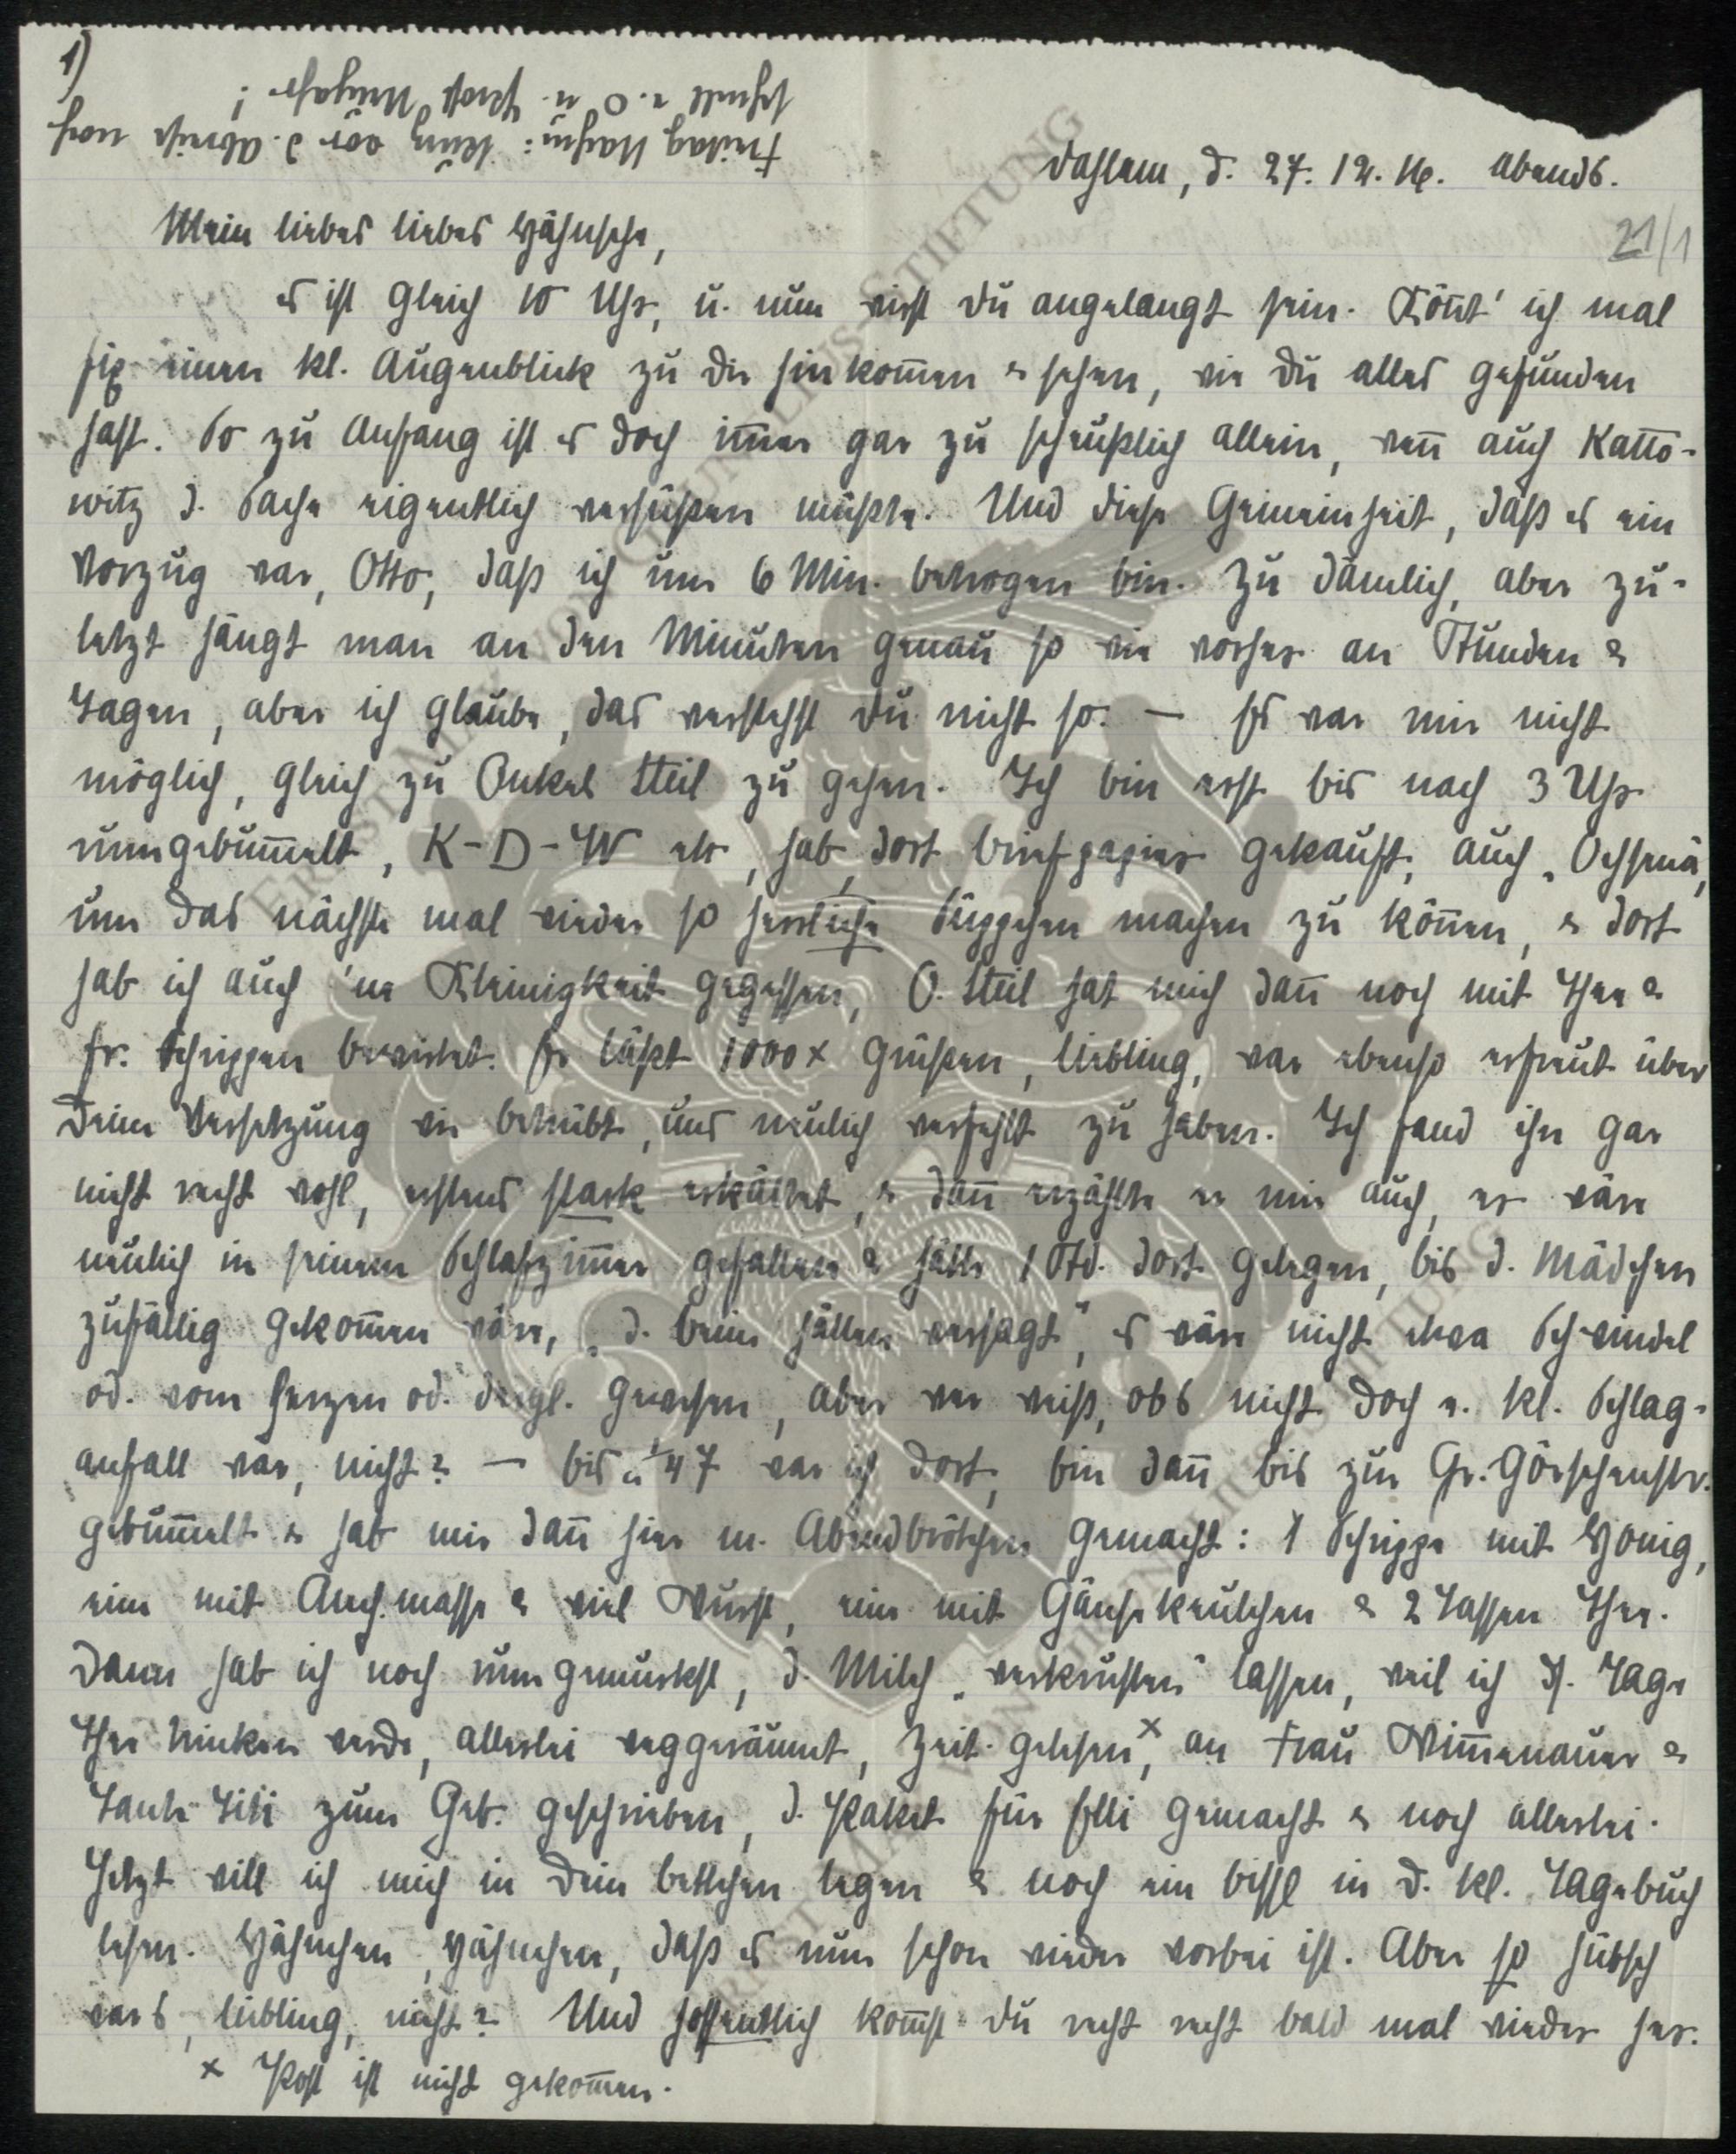 1)
Freitag Nachm: Kurz vor d. Abreise noch
schnell e. O u. Prost Neujahr!
Dahlem, d. 27. 12. 16. abends.
21/1
Mein liebes liebes Hähnsche,
es ist gleich 10 Uhr, u. nun wirst Du angelangt sein. Könt' ich mal
fix einen kl. Augenblick zu Dir hinkom̄en & sehen, wie Du alles gefunden
hast. So zu Anfang ist es doch im̄er gar zu scheußlich allein, wen̄ auch Katto-
witz d. Sache eigentlich versüßen müßte. Und diese Gemeinheit, daß es ein
Vorzug war, Otto, daß ich um 6 Min. betrogen bin. Zu dämlich, aber zu-
letzt hängt man an den Minuten genau so wie vorher an Stunden &
Tagen, aber ich glaube, das verstehst Du nicht so. — Es war mir nicht
möglich, gleich zu Onkel Steil zu gehen. Ich bin erst bis nach 3 Uhr
rumgebum̄elt, K-D-W etc, hab dort Briefpapier gekauft, auch „Ochsena,
um das nächste mal wieder so herrliche Süppchen machen zu kön̄en, & dort
hab ich auch 'ne Kleinigkeit gegessen, O. Steil hat mich dan̄ noch mit Thee &
fr. Schrippen bewirtet. Er läßt 1000x grüßen, Liebling, war ebenso erfreut über
Deine Versetzung wie betrübt, uns neulich verfehlt zu haben. Ich fand ihn gar
nicht recht wohl, erstens stark erkältet, & dan̄ erzählte er mir auch, er wäre
neulich in seinem Schlafzim̄er gefallen & hätte 1 Std. dort gelegen, bis d. Mädchen
zufällig gekom̄en wäre, „d. Beine hätten versagt", es wäre nicht etwa Schwindel
od. vom Herzen od. dergl. gewesen, aber wer weiß, obs nicht doch e. kl. Schlag-
anfall war, nicht? — Bis 1/4 7 war ich dort, bin dan̄ bis zur Gr. Görschenstr.
gebum̄elt & hab mir dan̄ hier m. Abendbrötchen gemacht: 1 Schrippe mit Honig,
eine mit masse & viel Wurst, eine mit Gänsekeulchen & 2 Tassen Thee.
Dann hab ich noch rumgemurkst, d. Milch „verkrusten" lassen, weil ich Tage
Thee trinken werde, allerlei weggeräumt, Zeit. gelesen x, an Frau Wim̄enauer &
Tante Titi zum Geb. geschrieben, d. Paket für Elli gemacht & noch allerlei.
Jetzt will ich mich in Dein Bettchen legen & noch ein bissl in d. kl. Tagebuch
lesen. Hähnchen, Hähnchen, daß es nun schon wieder vorbei ist. Aber so hübsch
wars, Liebling, nicht? Und hoffentlich kom̄st Du recht recht bald mal wieder her.
x Post ist nicht gekom̄en.